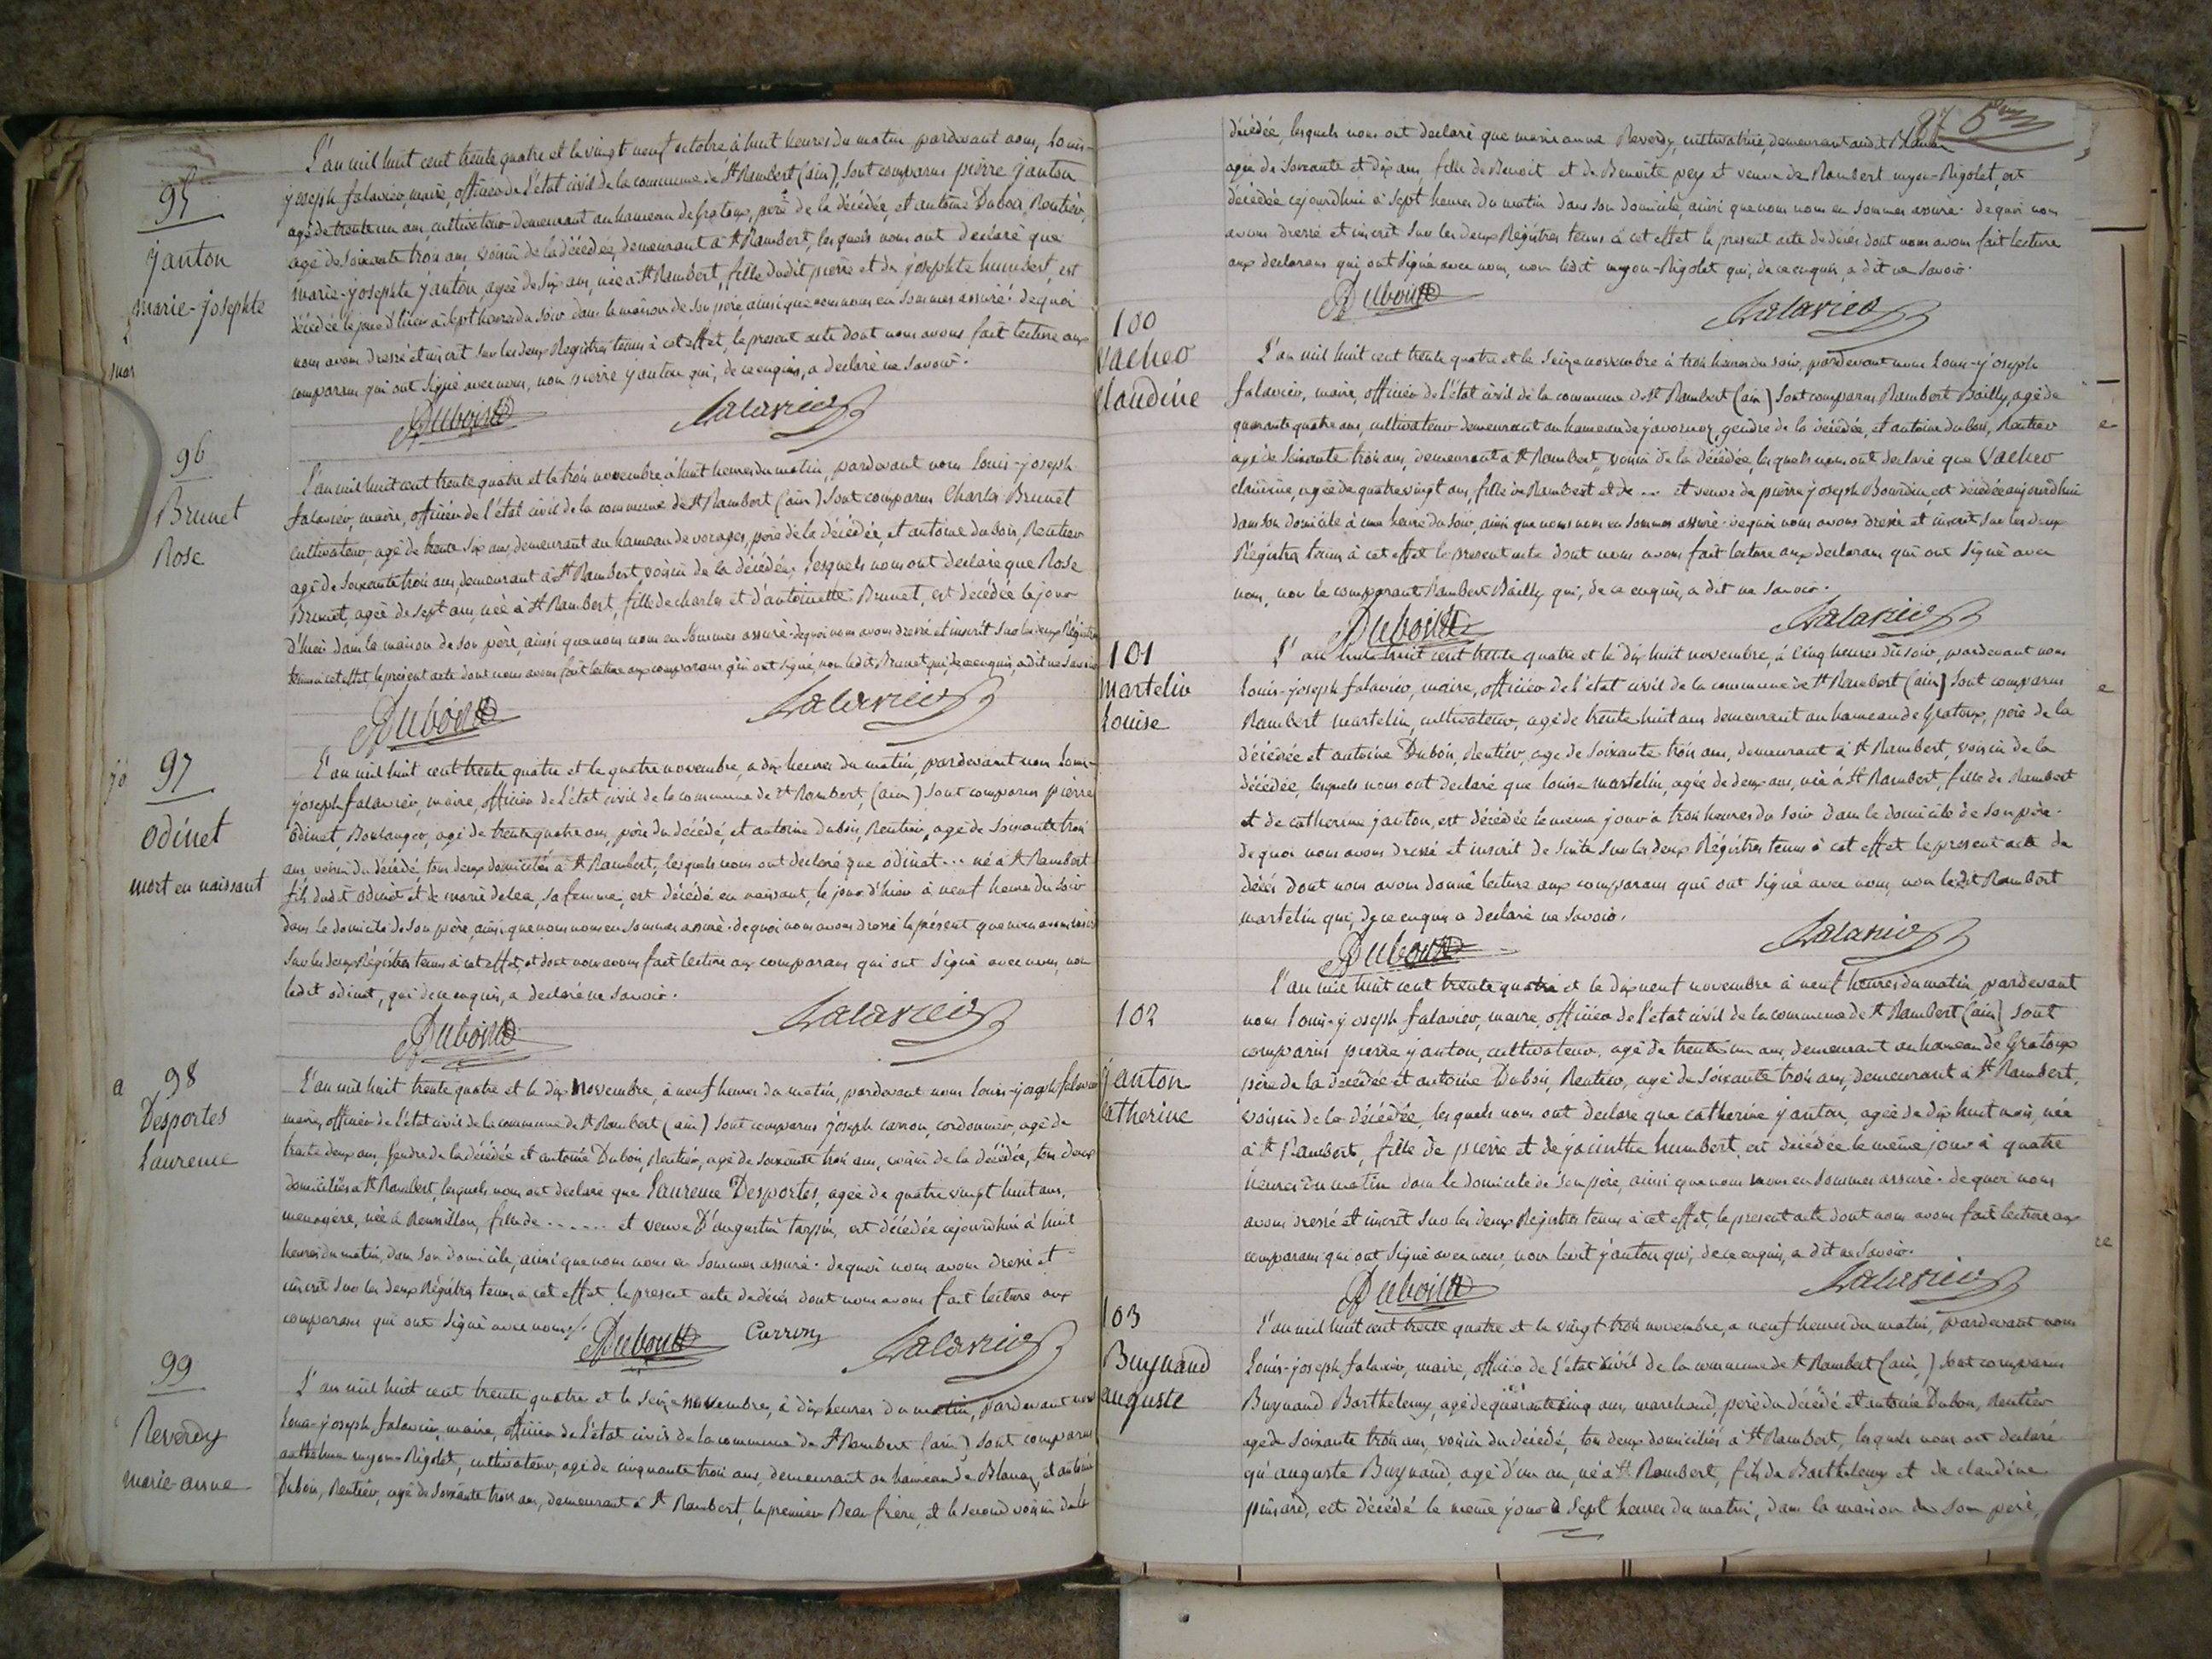 95
Janton
marie-josephte
L'an mil huit cent trente quatre et le vingt neuf octobre à huit heures du matin, pardevant nous, Louis-
joseph falavier, maire, officier de l'état civil de la commune de St Rambert (ain), sont comparus pierre janton
agé de trente un ans, cultivateur demeurant au hameau de gratoux, père de la décédée, et antoine Dubois, Rentier,
agé de soixante trois ans, voisin de la décédée, demeurant à St Rambert, lesquels nous ont declaré que
marie-josephte janton, agée de six ans, née à St Rambert, fille dudit pierre et de josephte humbert, est
décédée le jour d'hier à sept heures du soir dans la maison de son père, ainsi que nous nous en sommes assuré. de quoi
nous avons dressé et inscrit sur les deux Régistres tenus à cet effet, le present acte dont nous avons fait lecture aux
comparans qui ont signé avec nous, non pierre janton qui, de ce enquis, a declaré ne savoir.
Dubois
falavier
96
Brunet
Rose
L'an mil huit cent trente quatre et le trois novembre à huit heures du matin, pardevant nous Louis-joseph
falavier, maire, officier de l'état civil de la commune de St Rambert (ain) sont comparus Charles Brunet
cultivateur, agé de trente six ans, demeurant au hameau de vorages, père de la décédée, et antoine dubois, Rentier
agé de soixante trois ans, demeurant à St Rambert, voisin de la décédée, lesquels nous ont declaré que Rose
Brunet, agée de sept ans, née à St Rambert, fille de charles et d'antoinette Brunet, est décédée le jour
d'hier dans la maison de son père, ainsi que nous nous en sommes assuré. de quoi nous avons dressé et inscrit sur les deux Régistres
tenus à cet effet, le present acte dont nous avons fait lecture aux comparans qui ont signé, non ledit Brunet qui, de ce enquis, a dit ne savoir
Dubois
falavier
97
odinet
mort en naissant
L'an mil huit cent trente quatre et le quatre novembre, a dix heures du matin, pardevant nous Louis-
joseph falavier, maire, officier de l'état civil de la commune de St Rambert, (ain) sont comparus pierre
odinet Boulanger, agé de trente quatre ans, père du décédé, et antoine dubois, Rentier, agé de soixante trois
ans, voisin du décédé, tous deux domiciliés à St Rambert, lesquels nous ont declaré que odinet... né à St Rambert
fils dudit odinet et de marie delea, sa femme, est décédé en naissant, le jour d'hier à neuf heures du soir
dans le domicile de son père, ainsi que nous nous en sommes assuré. de quoi nous avons dressé le présent que nous avons inscrit
sur les deux Régistres tenus à cet effet, et dont nous avons fait lecture aux comparans qui ont signé avec nous, non
ledit odinet, qui de ce enquis, a declaré ne savoir.
Dubois
falavier
98
Desportes
Laurence
L'an mil huit trente quatre et le dix novembre, à neuf heures du matin, pardevant nous Louis-joseph falavier
maire, officier de l'état civil de la commune de St Rambert (ain) sont comparus joseph carron, cordonnier, agé de
trente deux ans, gendre de la décédée et antoine Dubois, Rentier, agé de soixante trois ans, voisin de la décédée, tous deux
domiciliés à St Rambert, lesquels nous ont declaré que Laurence Desportes, agée de quatre vingt huit ans,
menagère, née à Roussillon, fille de ...... et veuve D'augustin tarpin, est décédée cejourdhui à huit
heures du matin, dans son domicile, ainsi que nous nous en sommes assuré. de quoi nous avons dressé et
inscrit sur les deux Régistres tenus à cet effet le present acte de décès dont nous avons fait lecture aux
comparans qui ont signé avec nous.
Dubois Carron falavier
99
Reverdy
marie-anne
L'an mil huit cent trente quatre et le seize novembre, à dix heures du matin, pardevant nous
Louis-joseph falavier, maire, officier de l'état civil de la commune de St Rambert (ain) sont comparus
anthelme myon-Rigolet, cultivateur, agé de cinquante trois ans, demeurant au hameau de Blanaz, et antoine
Dubois, Rentier, agé de soixante trois ans, demeurant à St Rambert, le premier Beau frère, et le second voisin de la
décédée, lesquels nous ont declaré que marie anne Reverdy, cultivatrice, demeurant audit Blanaz
agée de soixante et dix ans, fille de Benoit et de Benoite pey et veuve de Rambert myon-Rigolet, est
décédée cejourdhui à sept heures du matin dans son domicile, ainsi que nous nous en sommes assuré. de quoi nous
avons dressé et inscrit sur les deux Régistres tenus à cet effet le present acte de décès dont nous avons fait lecture
aux declarans qui ont signé avec nous, non ledit myon-Rigolet qui, de ce enquis, a dit ne savoir.
Dubois
falavier
100
Vacher
Claudine
L'an mil huit cent trente quatre et le seize novembre à trois heures du soir, pardevant nous Louis-joseph
falavier, maire, officier de l'état civil de la commune de St Rambert (ain) sont comparus Rambert Bailly, agé de
quarante quatre ans, cultivateur demeurant au hameau de javornoz, gendre de la décédée, et antoine dubois, Rentier
agé de soixante trois ans, demeurant à St Rambert, voisin de la décédée, lesquels nous ont declaré que Vacher
claudine, agée de quatre vingt ans, fille de Rambert et de ... et veuve de pierre joseph Bourdin, est décédée aujourdhui
dans son domicile à une heure du soir, ainsi que nous nous en sommes assuré. de quoi nous avons dressé et inscrit sur les deux
Régistres tenus à cet effet le present acte dont nous avons fait lecture aux declarans qui ont signé avec
nous, non le comparant Rambert Bailly qui, de ce enquis, a dit ne savoir.
Dubois
falavier
101
martelin
Louise
L'an mil huit cent trente quatre et le dix huit novembre, à cinq heures du soir, pardevant nous
louis-joseph falavier, maire, officier de l'état civil de la commune de St Rambert (ain) sont comparus
Rambert martelin, cultivateur, agé de trente huit ans demeurant au hameau de Gratoux, père de la
décédée et antoine Dubois, Rentier, agé de soixante trois ans, demeurant à St Rambert, voisin de la
décédée, lesquels nous ont declaré que louise martelin, agée de deux ans, née à St Rambert, fille de Rambert
et de catherine janton, est décédée le meme jour à trois heures du soir dans le domicile de son père.
de quoi nous avons dressé et inscrit de suite sur les deux Régistres tenus à cet effet le present acte de
décès dont nous avons donné lecture aux comparans qui ont signé avec nous, non ledit Rambert
martelin qui, de ce enquis a declaré ne savoir.
Dubois
falavier
102
Janton
Catherine
L'an mil huit cent trente quatre et le dix neuf novembre à neuf heures du matin pardevant
nous Louis-joseph falavier, maire, officier de l'état civil de la commune de St Rambert (ain) sont
comparus pierre janton, cultivateur, agé de trente un ans, demeurant au hameau de Gratoux
père de la décédée et antoine Dubois, Rentier, agé de soixante trois ans, demeurant à St Rambert,
voisin de la décédée, lesquels nous ont declaré que catherine janton, agée de dix huit mois, née
à St Rambert, fille de pierre et de jacinthe humbert est décédée le même jour à quatre
heures du matin dans le domicile de son père, ainsi que nous nous en sommes assuré. de quoi nous
avons dressé et inscrit sur les deux Régistres tenus à cet effet, le present acte dont nous avons fait lecture aux
comparans qui ont signé avec nous, non ledit janton qui, de ce enquis, a dit ne savoir.
Dubois
falavier
103
Buynand
auguste
L'an mil huit cent trente quatre et le vingt trois novembre, a neuf heures du matin, pardevant nous
Louis-joseph falavier, maire, officier de l'état civil de la commune de St Rambert (ain) sont comparus
Buynand Barthelemy, agé de quarante cinq ans, marchand, père du décédé et antoine Dubois, Rentier
agé de soixante trois ans, voisin du décédé, tous deux domiciliés à St Rambert, lesquels nous ont declaré
qu'auguste Buynand, agé d'un an, né à St Rambert, fils de Barthelemy et de claudine
pinsard, est décédé le même jour à sept heures du matin, dans la maison de son père,